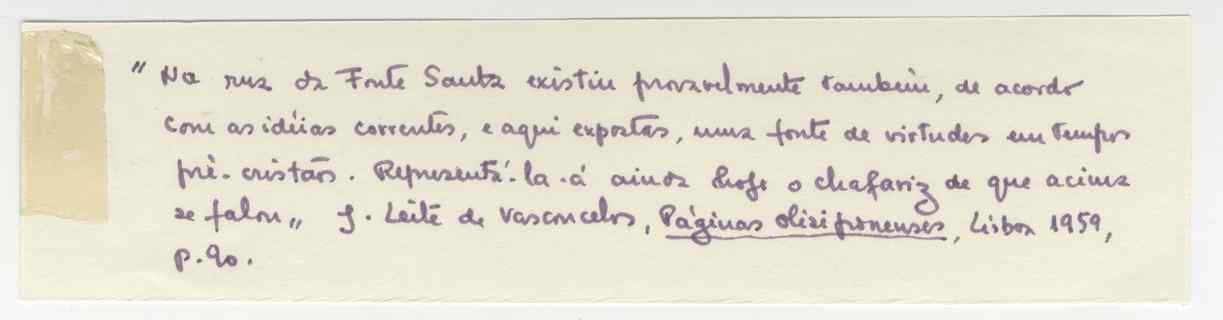 " Na rua da Fonte Santa existiu provavelmente também, de acordo
com as idéias correntes, e aqui expostas, uma fonte de virtudes em tempos
prè-cristãos. Representá-la-á ainda hoje o chafariz de que acima
se falou „ J. Leite de Vasconcelos, Páginas olisiponenses, Lisboa 1959,
p. 90.